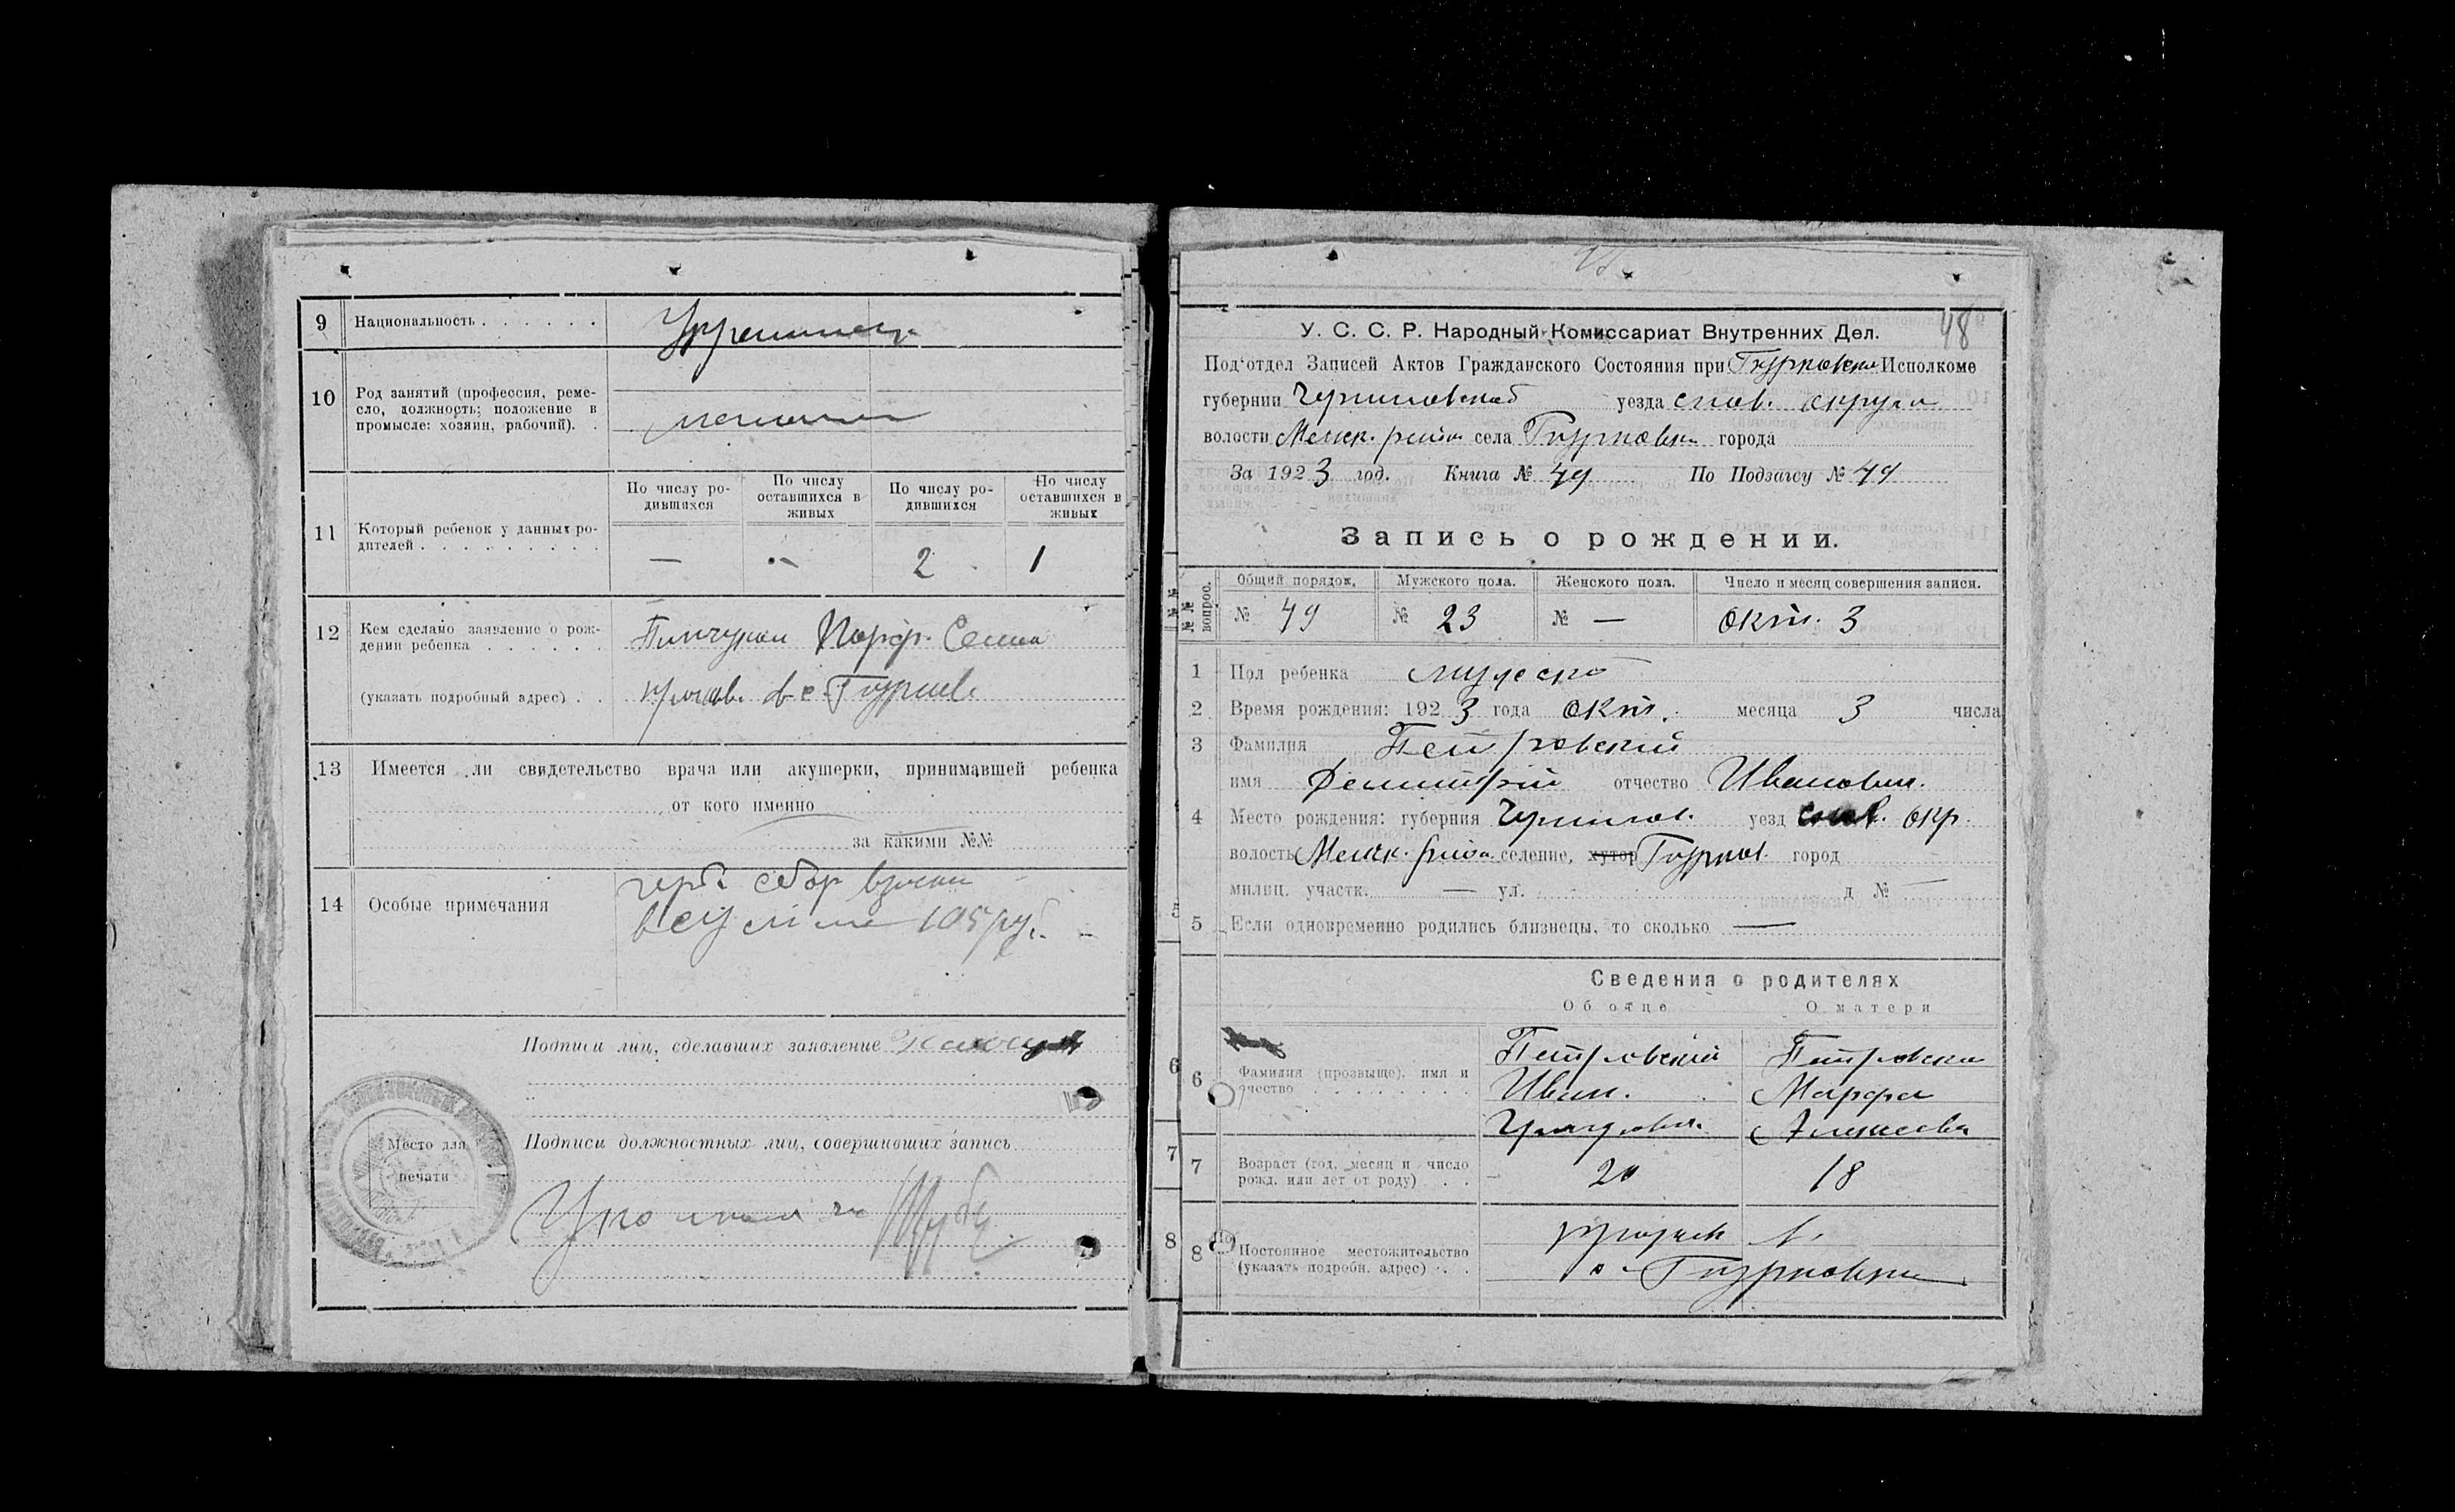 9 Национальность . . . . . . Украинец
10 Род занятий (профессия, реме-
сло, должность; положение в
промысле: хозяин, рабочий). .
11 Который ребенок у данных ро-
дителей . . . . . . . . .
По числу ро-
дившихся
По числу
оставшихся в
живых
По числу ро-
дившихся
По числу
оставшихся в
живых
— — 2 1
12 Кем сделано заявление о рож-
дении ребенка . . . . . .
(указать подробный адрес) . .
13 Имеется ли свидетельство врача или акушерки, принимавшей ребенка
от кого именно
за какими №№
14 Особые примечания
герб. сбор взыскан
в сумме 105 руб.
Подписи лиц, сделавших заявление
Место для
печати
Подписи должностных лиц, совершивших запись
48
У. С. С. Р. Народный Комиссариат Внутренних Дел.
Под‘отдел Записей Актов Гражданского Состояния при Исполкоме
губернии Черниговской уезда снов. округа
волости Менск. района села города
За 1923 год. Книга № 49 По Подзагсу № 49
Запись о рождении.
№№ вопрос.
Общий порядок. Мужского пола. Женского пола. Число и месяц совершения записи.
№ 49 № 23 № — окт. 3
1 Пол ребенка мужской
2 Время рождения: 1923 года окт. месяца 3 числа
3 Фамилия Петровский
имя Димитрий отчество Иванович.
4 Место рождения: губерния Чернигов. уезд снов. окр.
волость Менск. района селение, хутор город
милиц. участк. — ул. д №  —
5 Если одновременно родились близнецы, то сколько —
Сведения о родителях
Об отце О матери
6 Фамилия (прозвище), имя и
отчество . . . . . . . .
Петровский Петровская
Иван. Марфа
Алексеевна
7 Возраст (год, месяц и число
рожд. или лет от роду) . .
20 18
8 Постоянное местожительство
(указать подробн. адрес) . .